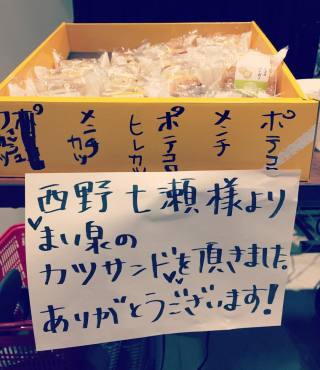 ポ
メンチカツ
ヒレカツ
ポテコロ
メンチ
ポテコロ
西野七瀬様より
まい泉の
カツサンドを頂きました
ありがとうございます!